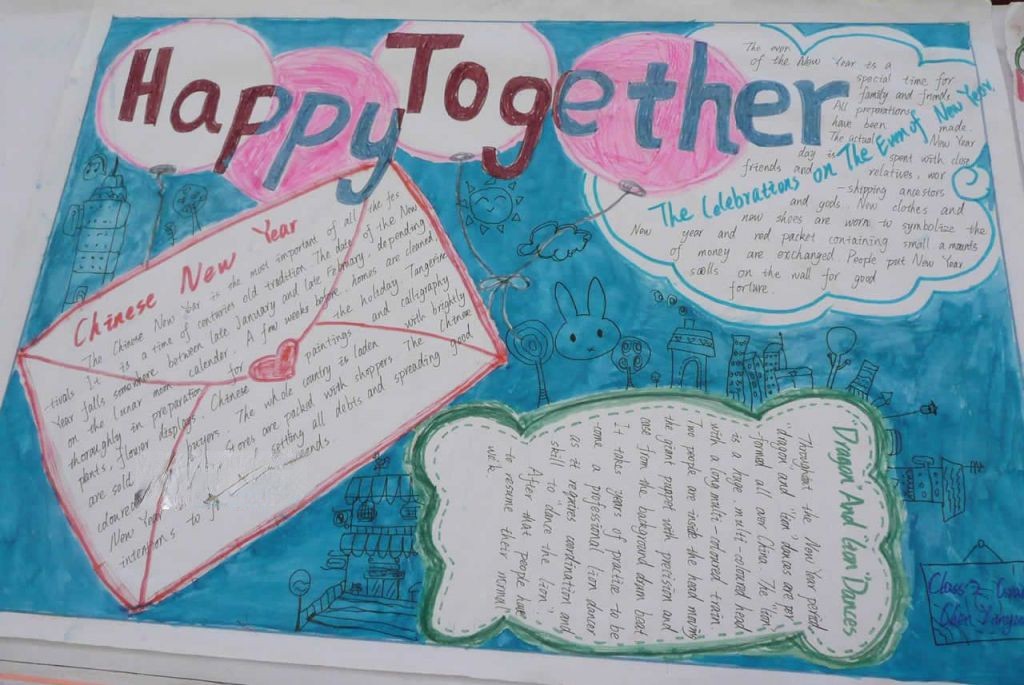 Happy Together
Chinese New Year
The Chinese New Year is the most important of all the fes
-tivals. It is a time of centuries old tradition. The date of the New
Year falls somewhere between late January and late February, depending
on the lunar moon calender. A few weeks before, homes are cleaned
thoroughly in preparation for the holiday. Tangerine
plants, flower displays, Chinese paintings and calligraphy
are sold. The whole country is laden with brightly
coloured buyers. Stores are packed with shoppers. The Chinese
New Year settling all debts and spreading good
intentions to ends
The Celebrations on The Even of New Year
The even
of the New Year is a
special time for
family and friends.
All preparations
have been made.
The actual New Year
day is spent with close
friends and relatives, wor
-shipping ancestors
and gods. New clothes and
new shoes are worn to symbolize the
New year and red packet containing small amounts
of money are exchanged. People put New Year
scolls on the wall for good
forture.
"Dragon" And "Lion" Dances
Throughout the New Year period,
"dragon and "lion" dances are per
formed all over China. The "lion"
is a huge, multi-coloured head
with a long multi-coloured train
Two people are inside the head moving
the giant puppet with precision and
ease from the background drum beat
It takes years of practize to be
-come a professional lion dancer
as it requires coordination and
skill to dance the "lion".
After that people have
to resume their normal
work.
Class 2